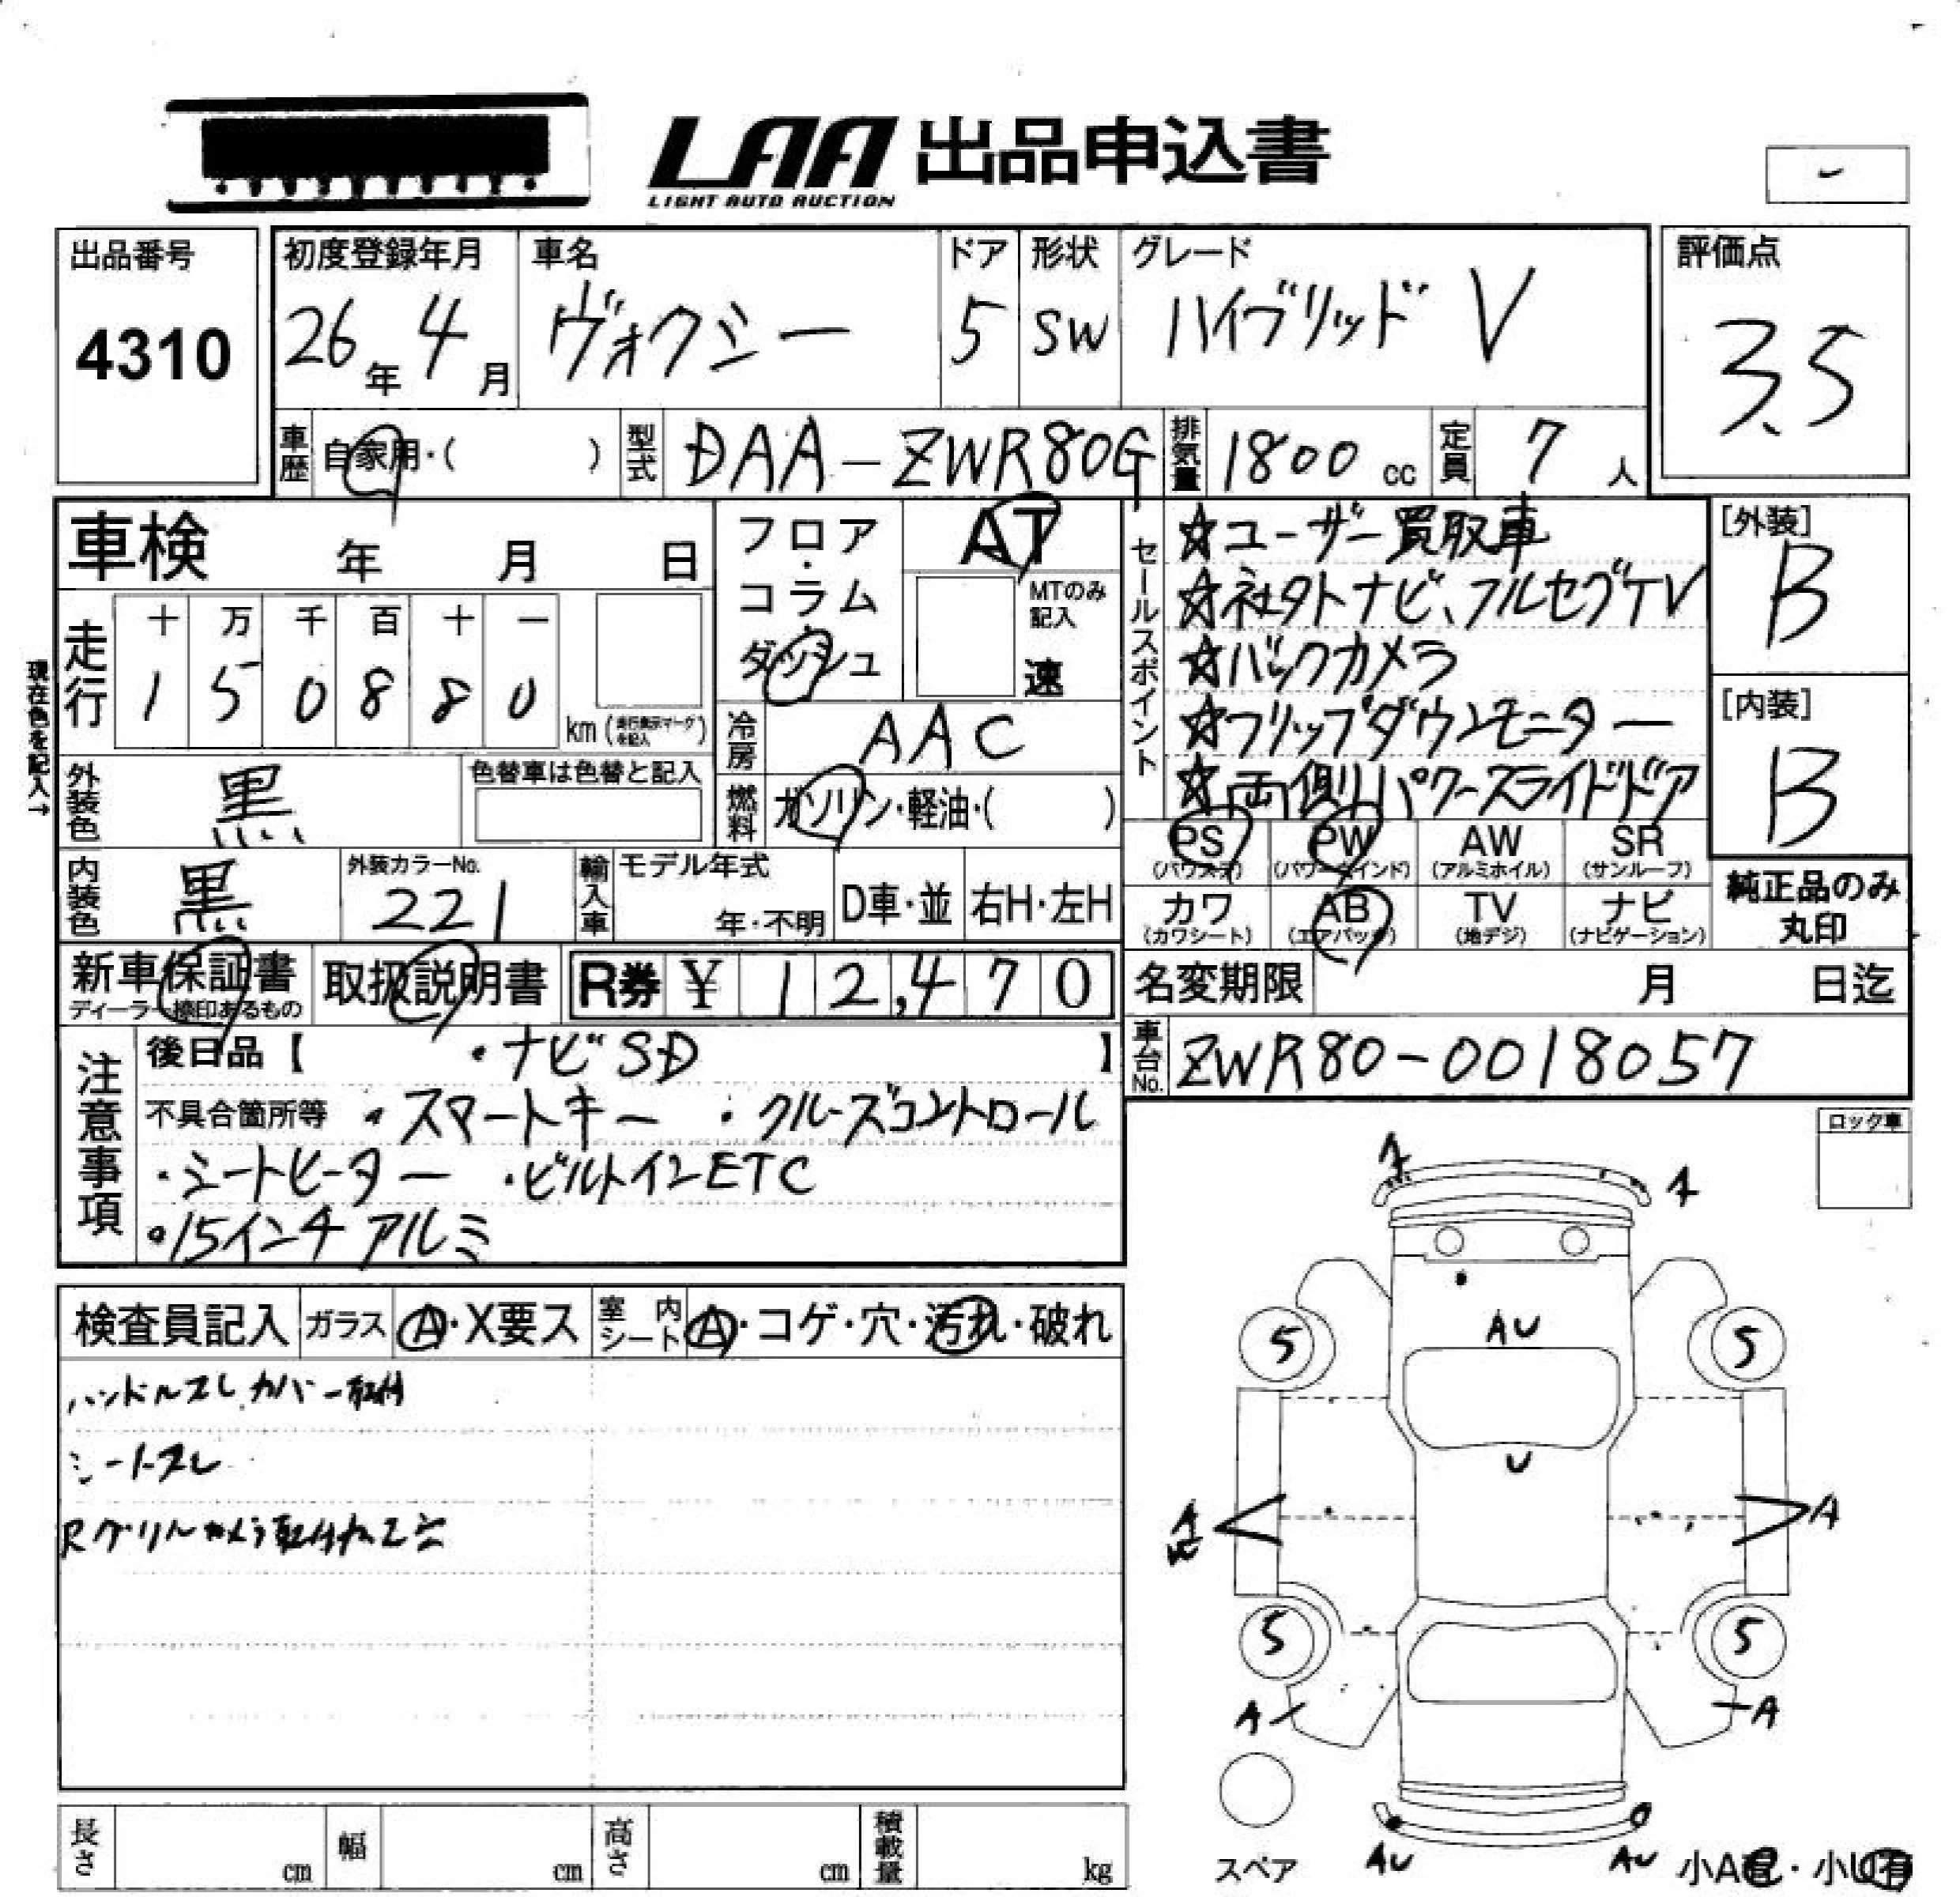 LAA 出品申込書
LIGHT AUTO AUCTION
出品番号
4310
初度登録年月
26年 4月
車名
ヴォクシー
ドア
5
形状
SW
グレード
ハイブリッド V
評価点
3.5
車歴 自家用・( )
型式 DAA-ZWR80G
排気量 1800 cc
定員 7人
車検 年 月 日
フロア・コラム・ダッシュ
AT
MTのみ記入
速
現在色を記入→
走行
十 万 千 百 十 一
1 5 0 8 8 0
km (走行表示マークを記入)
冷房 AAC
外装色 黒
色替車は色替と記入
燃料 ガソリン・軽油・( )
内装色 黒
外装カラーNo.
221
輸入車
モデル年式
年・不明
D車・並
右H・左H
セールスポイント
☆ユーザー買取車
☆社外ナビ、フルセグTV
☆バックカメラ
☆フリップダウンモニター
☆両側パワースライドドア
[外装]
B
[内装]
B
PS (パワステ)
PW (パワーウインド)
AW (アルミホイル)
SR (サンルーフ)
カワ (カワシート)
AB (エアバック)
TV (地デジ)
ナビ (ナビゲーション)
純正品のみ
丸印
新車保証書
ディーラー捺印あるもの
取扱説明書
R券 ¥ 12,470
名変期限 月 日迄
車台No. ZWR80-0018057
注意事項
後日品【 ・ナビSD 】
不具合箇所等 ・スマートキー ・クルーズコントロール
・シートヒーター ・ビルトインETC
・15インチ アルミ
ロック車
検査員記入
ガラス A・X要ス
室内シート A・コゲ・穴・汚れ・破れ
ハンドルスレ カバー取付
シートスレ
A
A
AU
5
5
U
A
A
5
5
A
A
AU
AU
スペア
小A有・小U有
長さ cm
幅 cm
高さ cm
積載量 kg